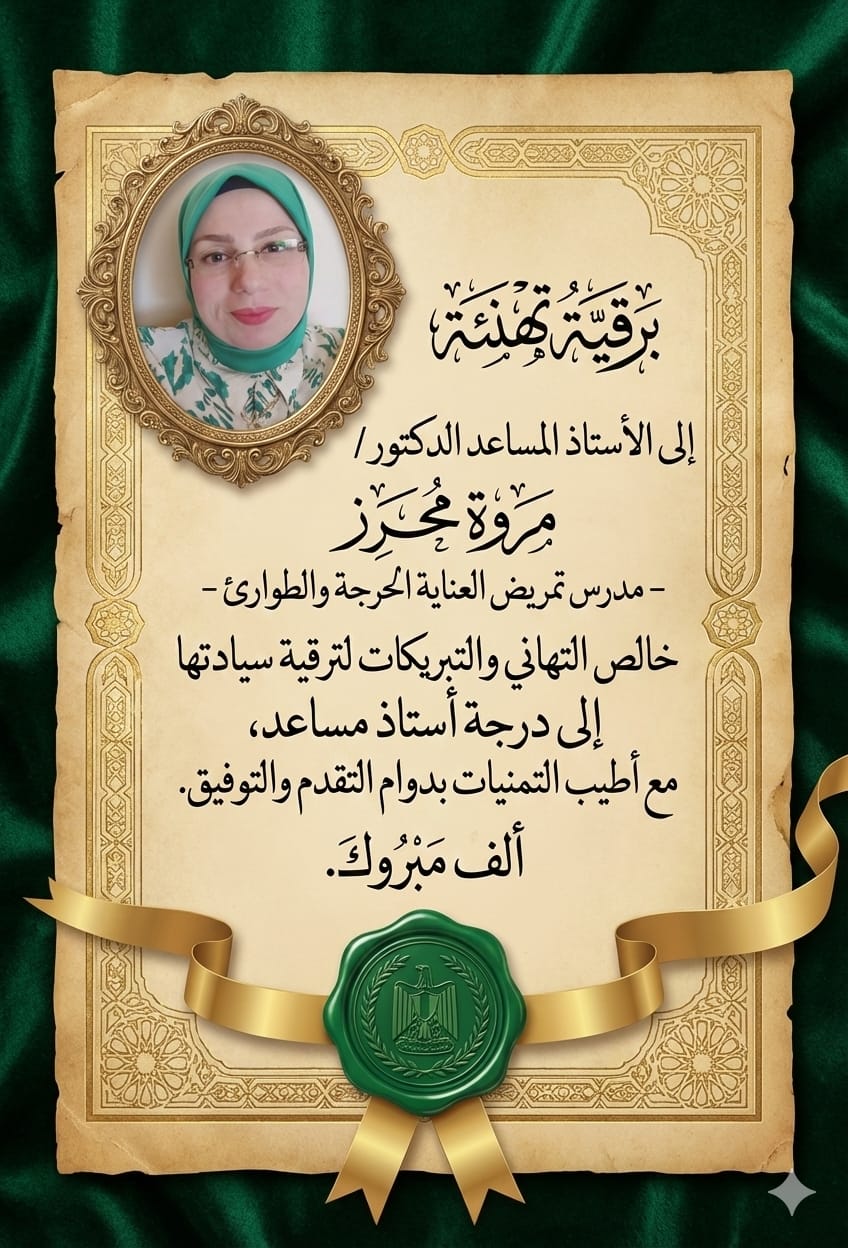 بَرقيَّةُ تهنئة
إلى الأستاذ المساعد الدكتور /
مَروة مُحَرِز
- مدرس تمريض العناية الحرجة والطوارئ -
خالص التهاني والتبريكات لترقية سيادتها
إلى درجة أستاذ مساعد،
مع أطيب التمنيات بدوام التقدم والتوفيق.
ألف مَبْرُوكَ.